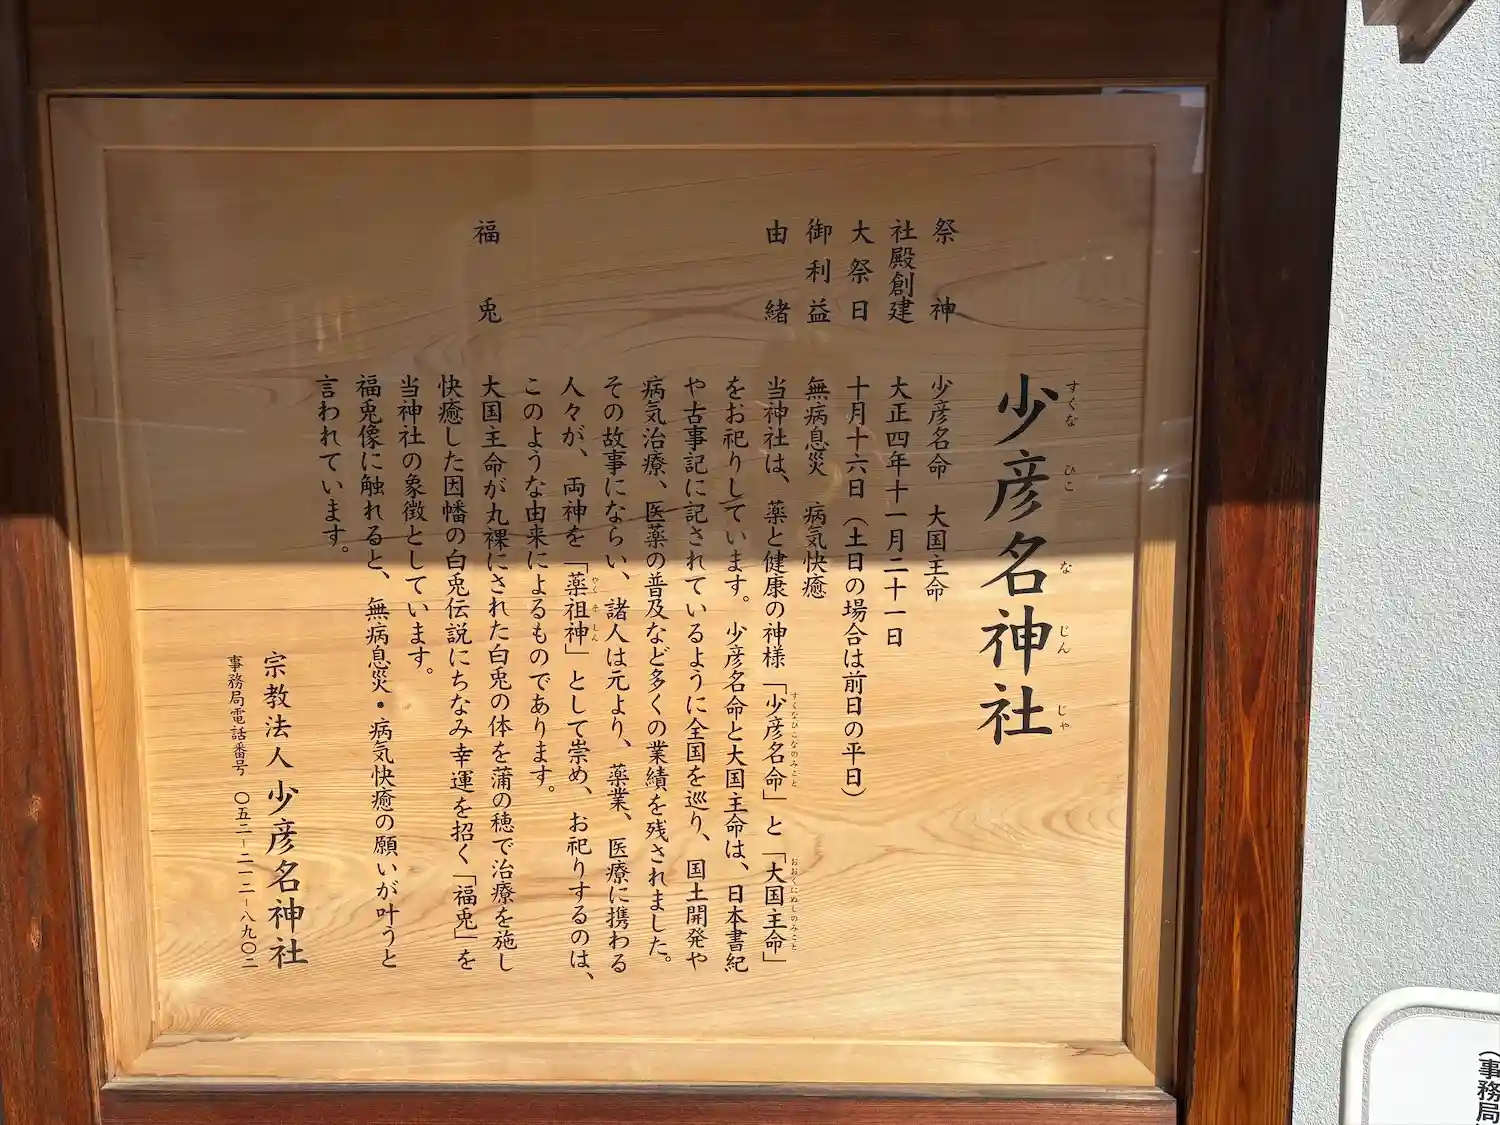 少彦名神社
すくな ひこ な じん じゃ
祭神 少彦名命 大国主命
社殿創建 大正四年十一月二十一日
大祭日 十月十六日(土日の場合は前日の平日)
御利益 無病息災 病気快癒
由緒 当神社は、薬と健康の神様「少彦名命」と「大国主命」
すくなひこなのみこと おおくにぬしのみこと
をお祀りしています。少彦名命と大国主命は、日本書紀
や古事記に記されているように全国を巡り、国土開発や
病気治療、医薬の普及など多くの業績を残されました。
その故事にならい、諸人は元より、薬業、医療に携わる
人々が、両神を「薬祖神」として崇め、お祀りするのは、
やくそしん
このような由来によるものであります。
福兎 大国主命が丸裸にされた白兎の体を蒲の穂で治療を施し
快癒した因幡の白兎伝説にちなみ幸運を招く「福兎」を
当神社の象徴としています。
福兎像に触れると、無病息災・病気快癒の願いが叶うと
言われています。
宗教法人 少彦名神社
事務局電話番号 〇五二-二一二-八九〇二
(事務局